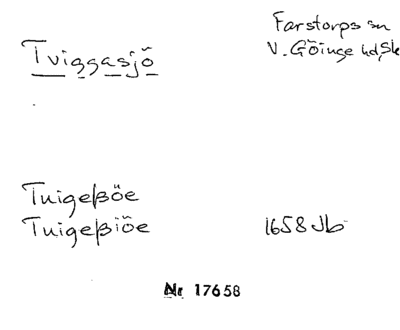 Tviggasjö
Farstorps sn
V. Göinge hd, Sk
Tuigeßöe
Tuigeßiöe 1658 Jb
Nr 17658